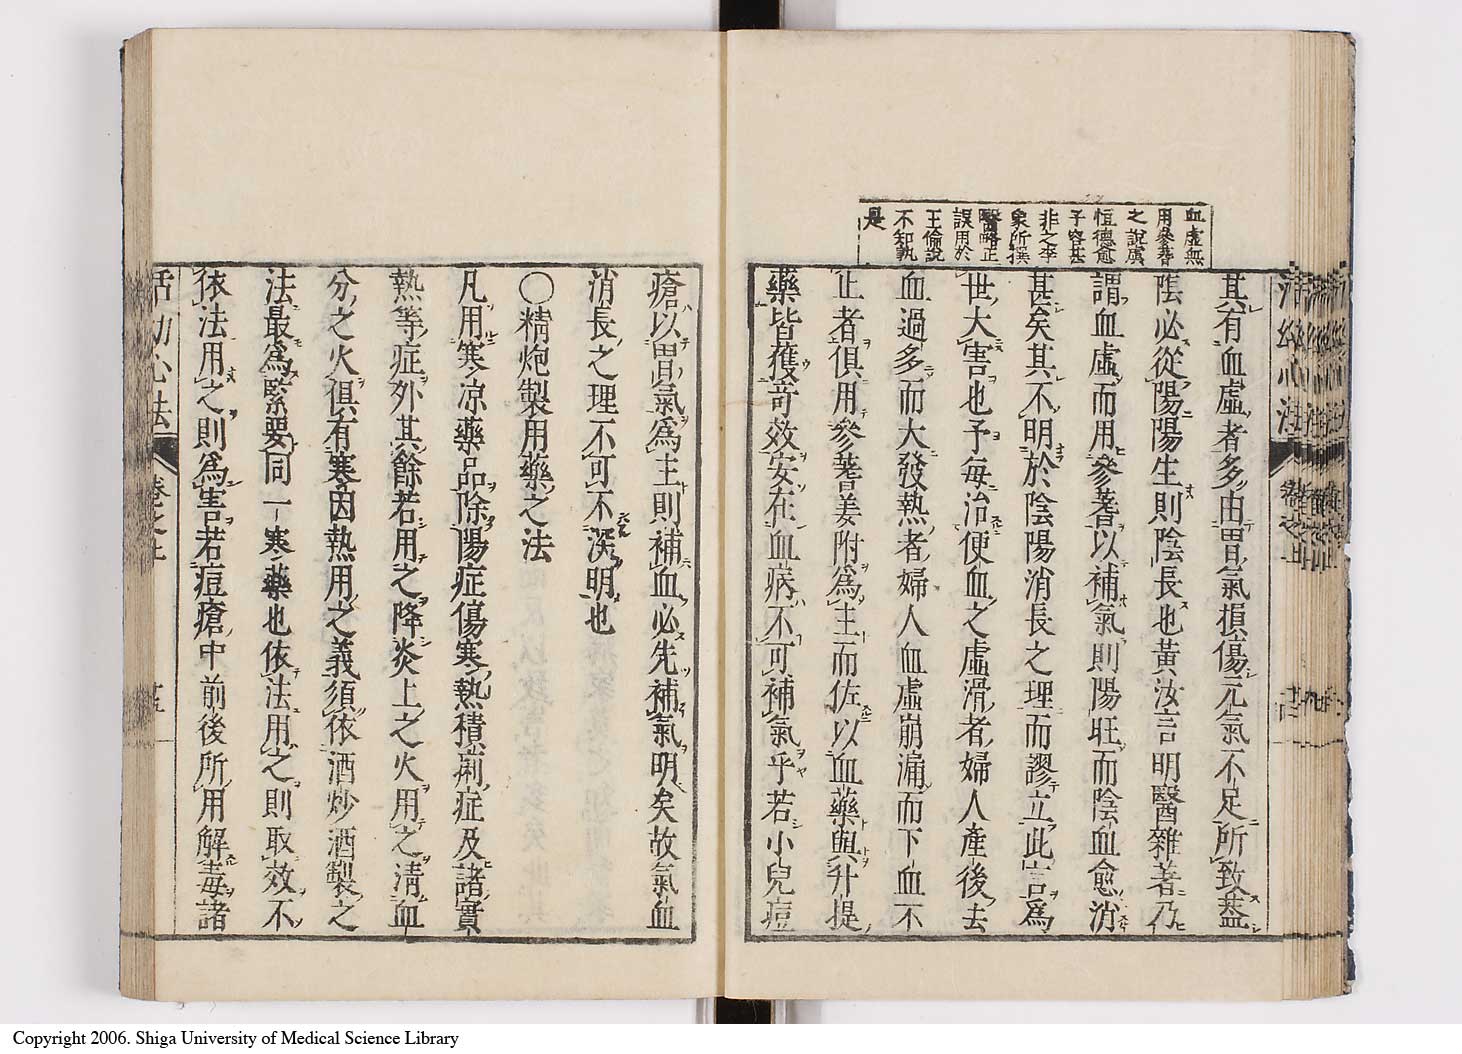 血虛無
用參蓍
之說虞
恒德愈
子容甚
非之李
象所撰
醫略正
誤用於
王倫說
不知孰
是
其有血虛者多由胃氣損傷元氣不足所致蓋
陰必從陽陽生則陰長也黃汝言明醫雜著乃
謂血虛而用參蓍以補氣則陽旺而陰血愈消
甚矣其不明於陰陽消長之理而謬立此言爲
世大害也予每治便血之虛滑者婦人產後去
血過多而大發熱者婦人血虛崩漏而下血不
止者俱用參蓍姜附爲主而佐以血藥與升提
藥皆獲奇效安在血病不可補氣乎若小兒痘
瘡以胃氣爲主則補血必先補氣明矣故氣血
消長之理不可不深明也
〇精炮製用藥之法
凡用寒凉藥品除陽症傷寒熱積痢症及諸實
熱等症外其餘若用之降炎上之火用之清血
分之火俱有寒因熱用之義須依酒炒酒製之
法最爲緊要同一寒藥也依法用之則取效不
依法用之則爲害若痘瘡中前後所用解毒諸
活幼心法
卷之上
Copyright 2006. Shiga University of Medical Science Library